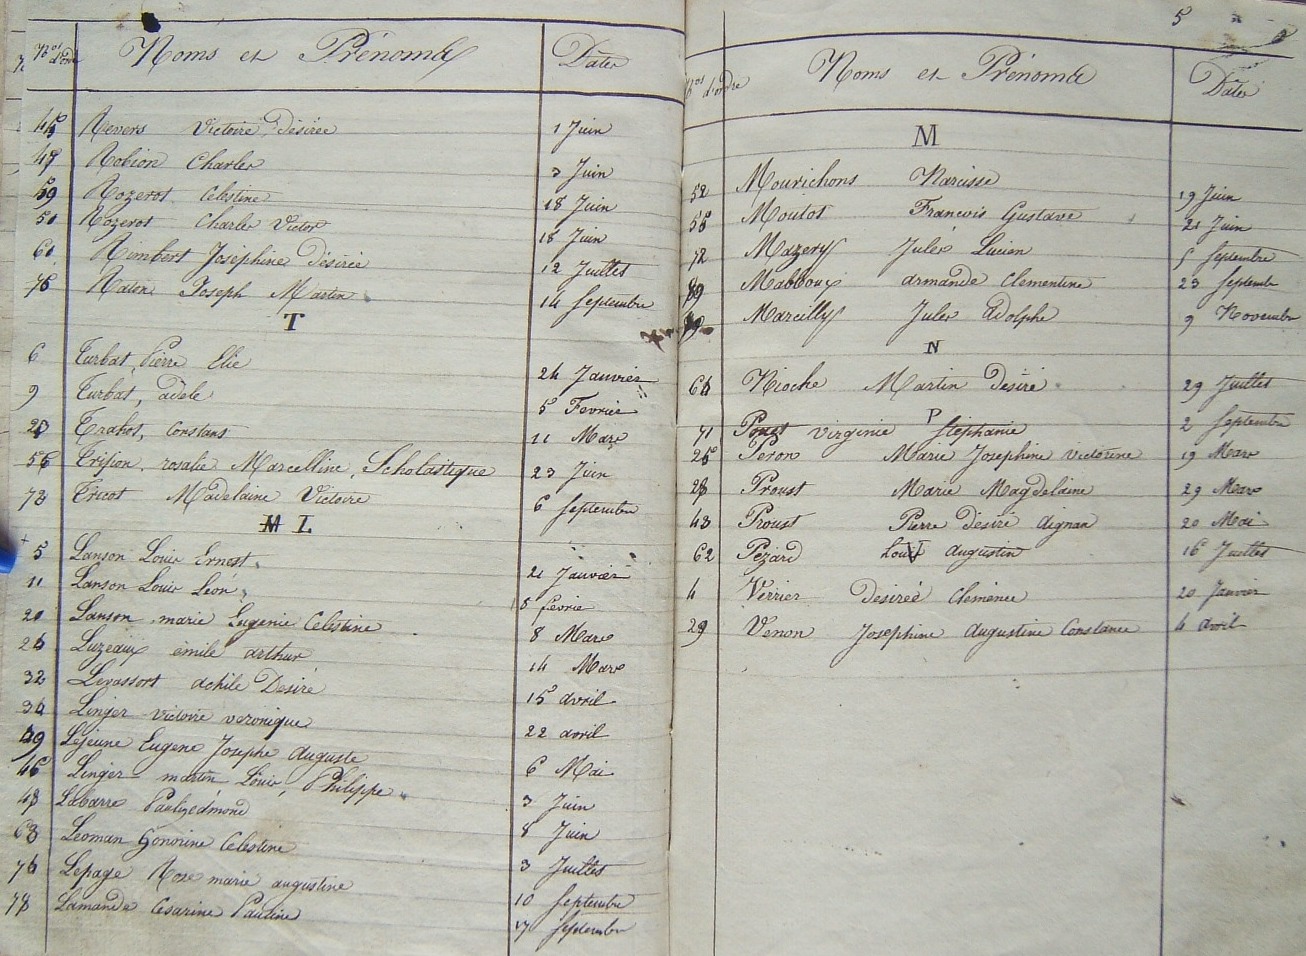 Nos d'ordre Noms et Prénoms Dates
45 Revers Victoire Désirée 1 Juin
47 Robion Charles 3 Juin
49 Rozerot Celestine 18 Juin
50 Rozerot Charles Victor 18 Juin
60 Rimbert Joséphine Désirée 12 Juillet
75 Raton Joseph Martin 14 Septembre
T
6 Turbat, Pierre Elie 24 Janvier
9 Turbat, adèle 5 Fevrier
Trahot, Constant 11 Mars
56 rosalie Marcelline, Scholastique 23 Juin
72 Tricot Madelaine Victoire 6 Septembre
M L
5 Lanson Louis Ernest 21 Janvier
11 Lanson Louis Léon 8 fevrie
20 Lanson marie Eugenie Celestine 8 Mars
24 Luzeaux émile arthur 14 Mars
32 Levassort achile Desiré 15 avril
34 Linger victoire veronique 22 avril
39 Lejeune Eugene Josephe auguste 6 Mai
46 Linger martin Louis, Philippe 3 Juin
48 Labarre Paul,edmond 8 Juin
Leoman honorine Celestine 3 Juillet
74 Lepage Rose marie augustine 10 Septembre
78 Lamande Cesarine Pauline 17 Septembre
5
Nos d'ordre Noms et Prénoms Dates
M
52 Mourichons Narcisse 19 Juin
55 Moulot Francois Gustave 21 Juin
72 Mazery Jules Lucien 5 Septembre
Mabboux armande Clementine 23 Septembre
Marcilly Jules Adolphe 9 Novembre
N
64 Nioche Martin desiré 29 Juillet
P
71 virginie Stéphanie 2 Septembre
25 Peron Marie Josephine victorine 19 Mars
28 Proust Marie Magdelaine 29 Mars
43 Proust Pierre désiré aignan 20 Mai
62 Pezard Louis augustin 16 Juillet
4 Verrier desireé Clémence 20 Janvier
29 Venon Josephine augustine Constance 4 avril